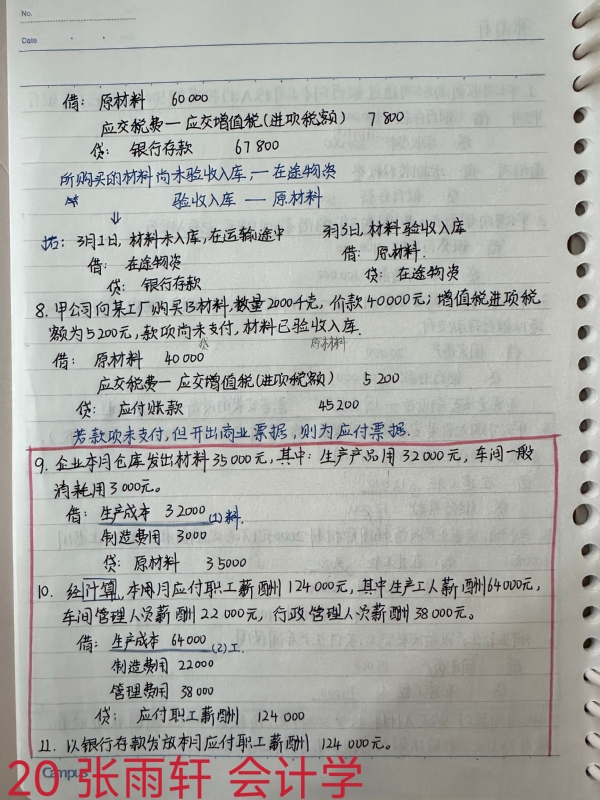 No.
Date
借: 原材料 60 000
应交税费—应交增值税(进项税额) 7 800
贷: 银行存款 67 800
所购买的材料尚未验收入库,—在途物资
验收入库 — 原材料
⇓
3月1日, 材料未入库, 在运输途中 3月3日, 材料验收入库
借: 在途物资 借: 原材料.
贷: 银行存款 贷: 在途物资
8. 甲公司向某工厂购买B材料, 数量2000千克, 价款40000元; 增值税进项税
额为5200元, 款项尚未支付, 材料已验收入库.
贷 原材料
借: 原材料 40 000
应交税费—应交增值税(进项税额) 5 200
贷: 应付账款 45 200
若款项未支付, 但开出商业票据, 则为应付票据.
9. 企业本月仓库发出材料35000元, 其中: 生产产品用32000元, 车间一般
消耗用3000元。
借: 生产成本 32000 (1)料.
制造费用 3000
贷: 原材料 35000
10. 经计算, 本月应付职工薪酬124 000元, 其中生产工人薪酬64000元,
车间管理人员薪酬22 000元, 行政管理人员薪酬38 000元。
借: 生产成本 64000 (2)工.
制造费用 22000
管理费用 38 000
贷: 应付职工薪酬 124 000
11. 以银行存款发放本月应付职工薪酬 124 000元。
Campus
20 张雨轩 会计学